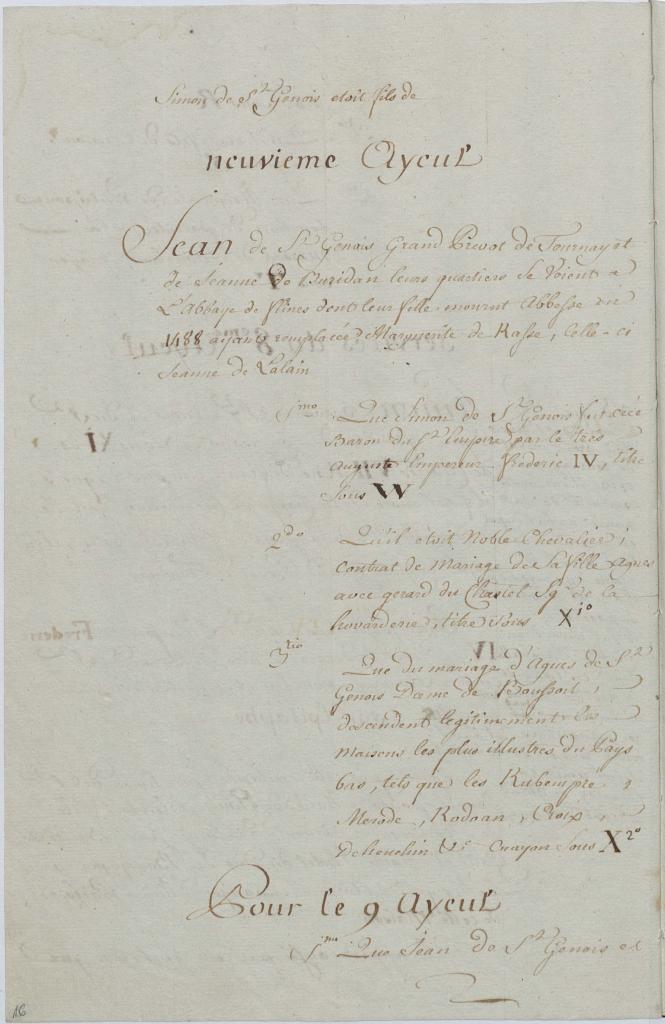 Simon de St Genois etoit fils de
neuvieme Ayeul
Jean de St Genois Grand Prevot de Tournay et
de Jeanne de Buridan leurs quartiers se voient a
L'Abbaye de flines dont leur fille mourut Abbesse en
1488 aijant remplacée Marguerite de Rasse, celle-ci
Jeanne de Lalain
1mo Que Simon de St Genois fut créé
Baron du St Empire par le très
Auguste Empereur frederic IV, titre
sous W
2do Qu'il etoit Noble Chevalier;
contrat de Mariage de sa fille Agnes
avec gerard du Chastel Sgr de la
hovarderie, titre sous X 1o
3tio Que du mariage d'Agnes de St
Genois Dame de
descendent legitimement les
Maisons les plus illustres du Pays
bas, tels que les Rubempré,
Merode, Rodoan, Croix,
&c Crayon sous X 2o
Pour le 9 Ayeul
1mo Que Jean de St Genois et
16